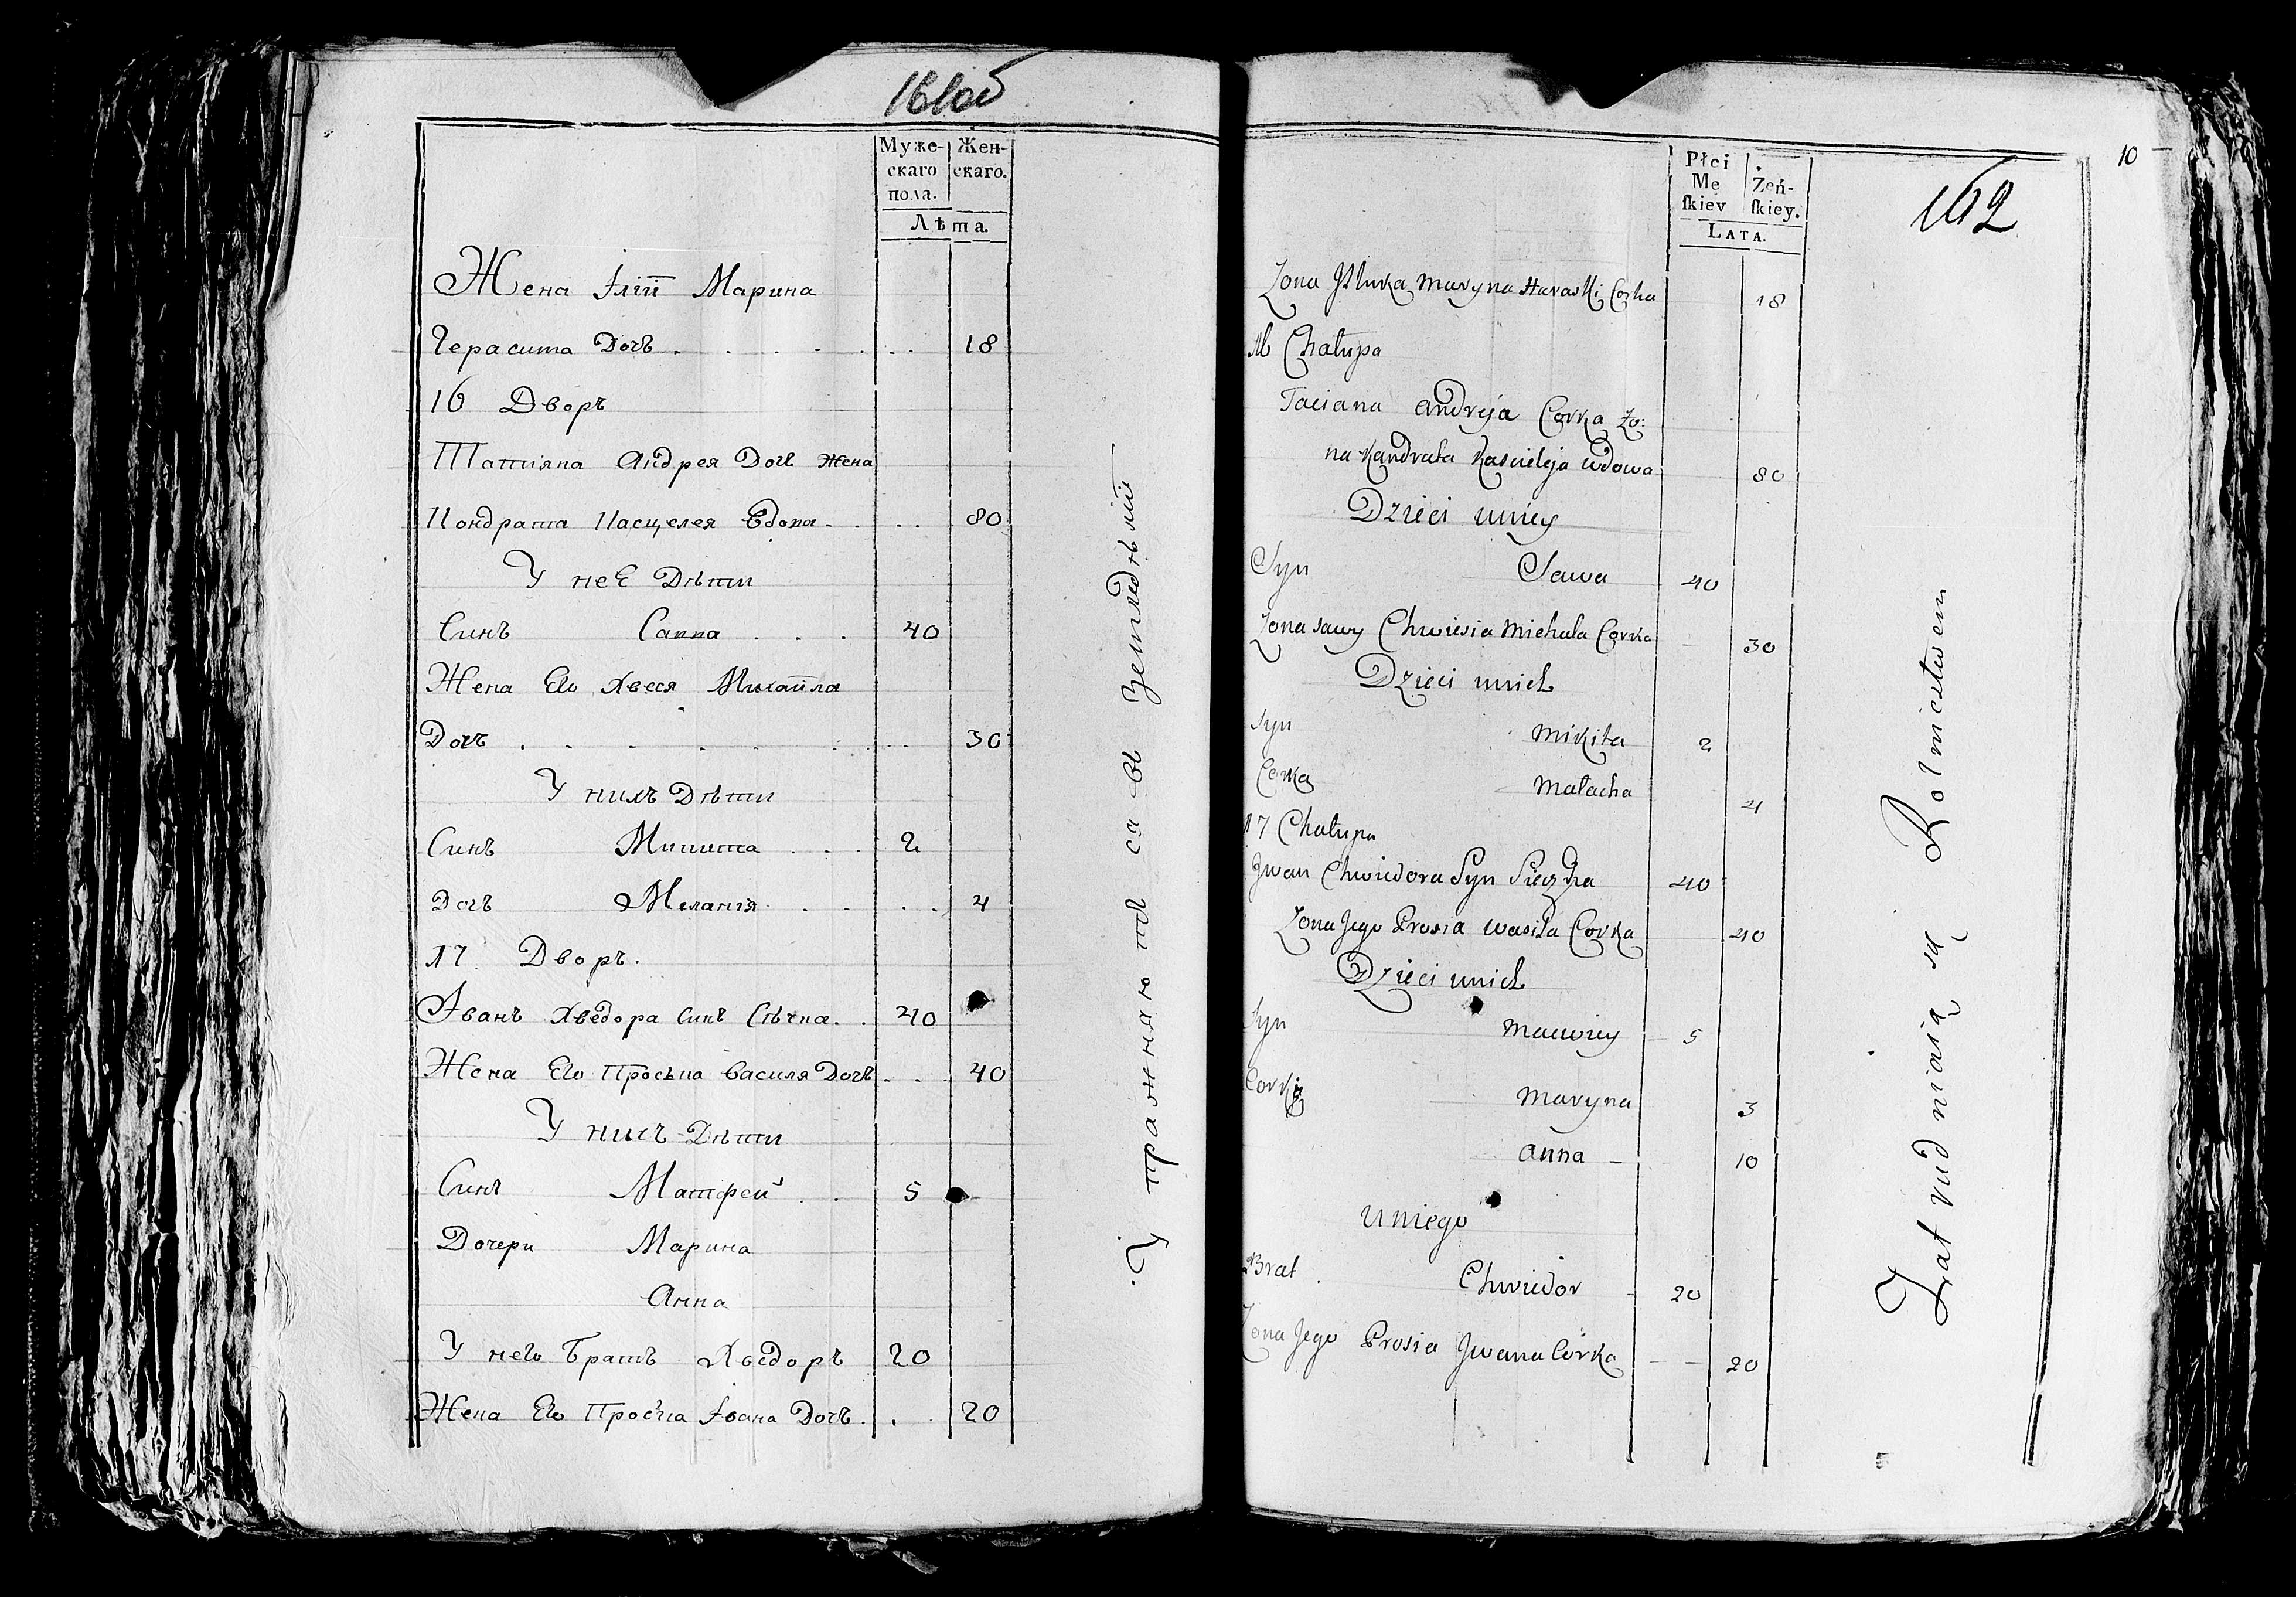 161об
Муже-
скаго
пола.
Жен-
скаго.
Лѣта.
Жена Іліи Марина
Герасима Дочь 18
16 Дворъ
Татияна Андрея Дочь Жена
Кондрата Касцелея Вдова 80
У неё Дѣти
Синъ Савва 40
Жена Его Хвеся Михайла
Дочь 30
У нихъ Дѣти
Синъ Микита 2
Дочь Меланія 4
17 Дворъ.
Іванъ Хведора Синъ Сѣчка 40
Жена Его Проська Василя Дочь 40
У нихъ Дѣти
Синъ Матфей 5
Дочери Марина
Анна
У него Братъ Хведоръ 20
Жена Его Проська Івана Дочь 20
Упражняютъ ся въ Земледѣліи
10
162
Płci
Mę
ſkiey
Żeń-
ſkiey.
LATA.
Zona Maryna Corka 18
16 Chałupa
Taciana Andreja Corka Zo:
na Kandrata Kascieleja wdowa 80
Dzieci uniey
Syn Sawa 40
Zona Sawy Chwiesia Michała Corka 30
Dzieci unich
Syn Mikita 2
Corka Małacha 4
17 Chałupa
Jwan Chwiedora Syn Sieczka 40
Zona Jego Prosia Wasila Corka 40
Dzieci unich
Syn Maciwiey 5
Corki Maryna 3
Anna 10
Uniego
Brat Chwiedor 20
Zona Jego Prosia Jwana Córka 20
Zatrudniaią się Rolnictwem